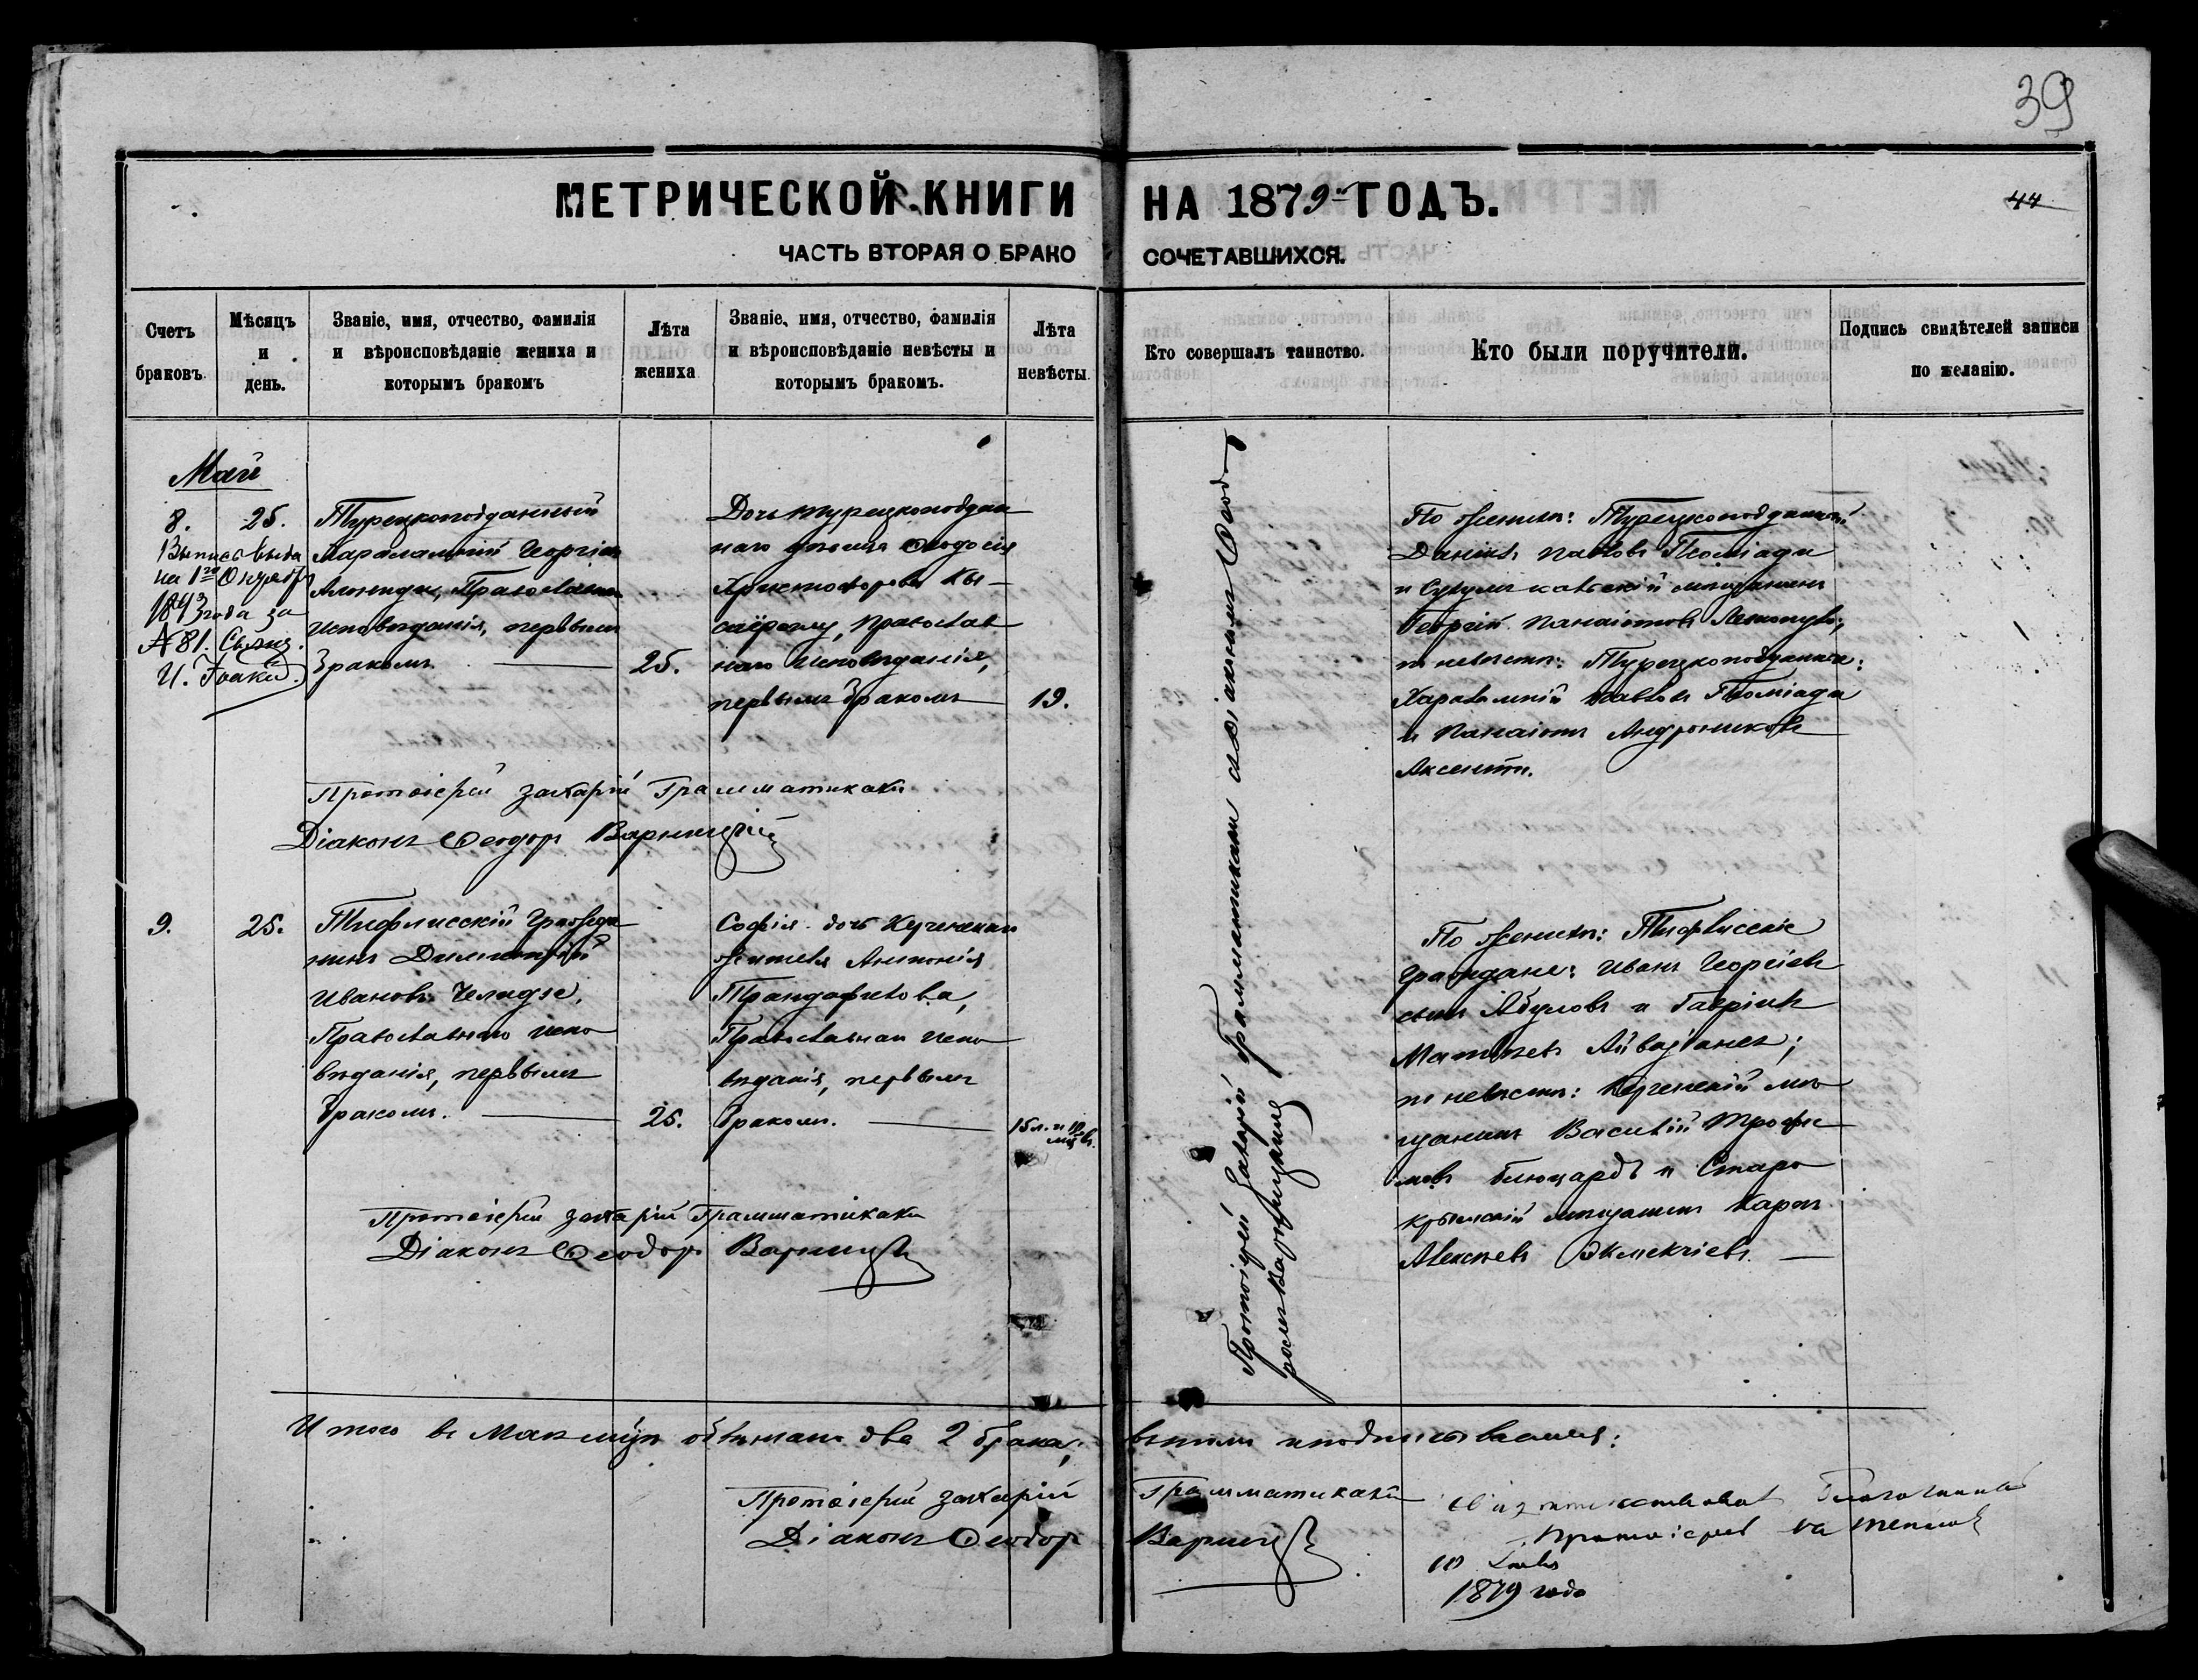 39
МЕТРИЧЕСКОЙ КНИГИ НА 1879й ГОДЪ.
44
ЧАСТЬ ВТОРАЯ О БРАКО СОЧЕТАВШИХСЯ.
Счетъ браковъ.
Мѣсяцъ и день.
Званіе, имя, отчество, фамилія
и вѣроисповѣданіе жениха и
которымъ бракомъ
Лѣта жениха
Званіе, имя, отчество, фамилія
и вѣроисповѣданіе невѣсты и
которымъ бракомъ.
Лѣта невѣсты.
Кто совершалъ таинство.
Кто были поручители.
Подпись свидѣтелей записи
по желанію.
Май
8. 25.
на 1ое Октября
года за
№ 81.
Турецкоподданный
Харалампій Георгіев
Православнаго
исповѣданія, первымъ
бракомъ.
25.
Дочь турецкоподдан
наго Ѳеодосія
Христофорова
православ
наго исповѣданія,
первымъ бракомъ
19.
Протоіерей Захарій Грамматикаки съ діакономъ Ѳеодо
ромъ Варницкимъ
По женихѣ: Турецкоподданный
Даніилъ Павловъ
и мѣщанинъ
Георгій Панаіотовъ
по невѣстѣ: Турецкоподданные:
Харалампій Павловъ
и Панаіотъ Андрониковъ
Протоіерей Захарій Грамматикаки
Діаконъ Ѳеодоръ Варницкій
9. 25.
Тифлисскій гражда
нинъ Димитрій
Ивановъ Челидзе,
Православнаго испо
вѣданія, первымъ
бракомъ.
25.
Софія дочь Керченскаго
жителя Антонія
Трандафилова,
Православнаго испо
вѣданія, первымъ
бракомъ.
15 л. и 10 мѣс.
По женихѣ: Тифлисскіе
граждане: Иванъ Георгіевъ
сынъ Абуловъ и Гавріилъ
Матвѣевъ
по невѣстѣ: Керченскій мѣ
щанинъ Василій Трофи
мовъ и Старо
крымскій мѣщанинъ Карпъ
Алексѣевъ Экмекчіевъ.
Протоіерей Захарій Грамматикаки
Діаконъ Ѳеодоръ Варницкій
Итого въ Маѣ два 2 брака,
въ томъ и подписываемся:
Протоіерей Захарій Грамматикаки
Діаконъ Ѳеодоръ Варницкій
Благочинный
Протоіерей
10
1879 года